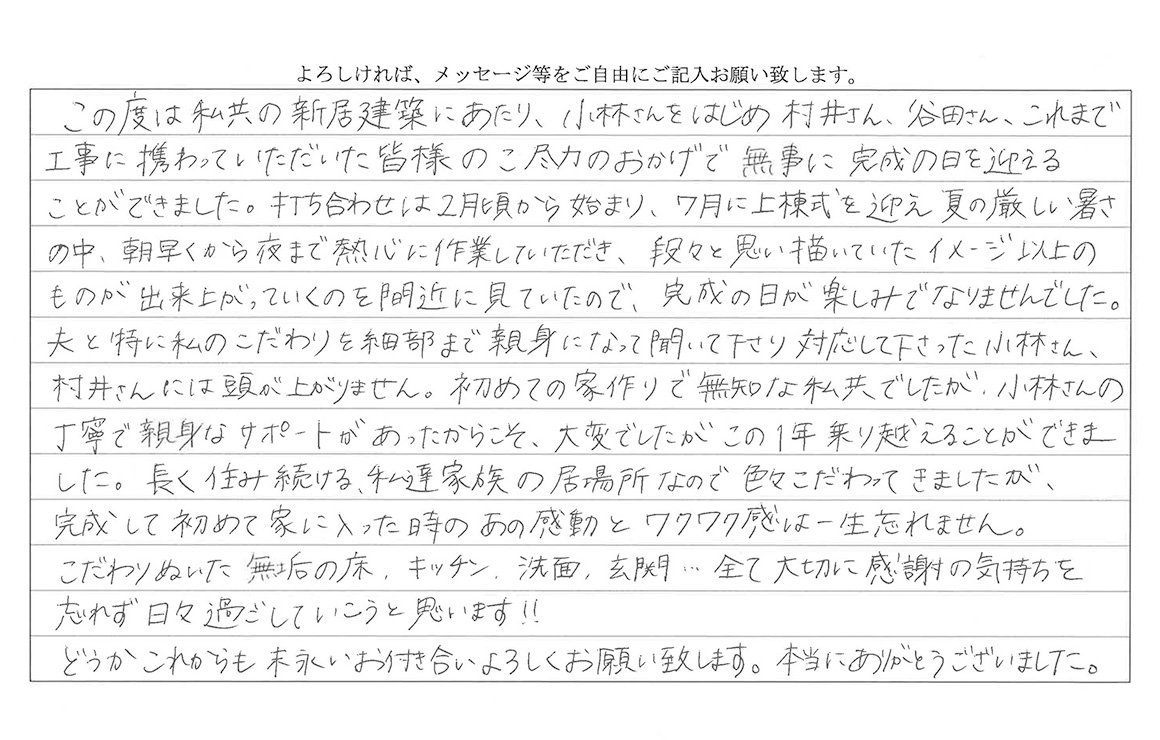 よろしければ、メッセージ等をご自由にご記入お願い致します。
この度は私共の新居建築にあたり、小林さんをはじめ村井さん、谷田さん、これまで
工事に携わっていただいた皆様のご尽力のおかげで無事に完成の日を迎える
ことができました。打ち合わせは2月頃から始まり、7月に上棟式を迎え夏の厳しい暑さ
の中、朝早くから夜まで熱心に作業していただき、段々と思い描いていたイメージ以上の
ものが出来上がっていくのを間近に見ていたので、完成の日が楽しみでなりませんでした。
夫と特に私のこだわりを細部まで親身になって聞いて下さり対応して下さった小林さん、
村井さんには頭が上がりません。初めての家作りで無知な私共でしたが、小林さんの
丁寧で親身なサポートがあったからこそ、大変でしたがこの1年乗り越えることができま
した。長く住み続ける、私達家族の居場所なので色々こだわってきましたが、
完成して初めて家に入った時のあの感動とワクワク感は一生忘れません。
こだわりぬいた無垢の床、キッチン、洗面、玄関…全て大切に感謝の気持ちを
忘れず日々過ごしていこうと思います!!
どうかこれからも末永いお付き合いよろしくお願い致します。本当にありがとうございました。